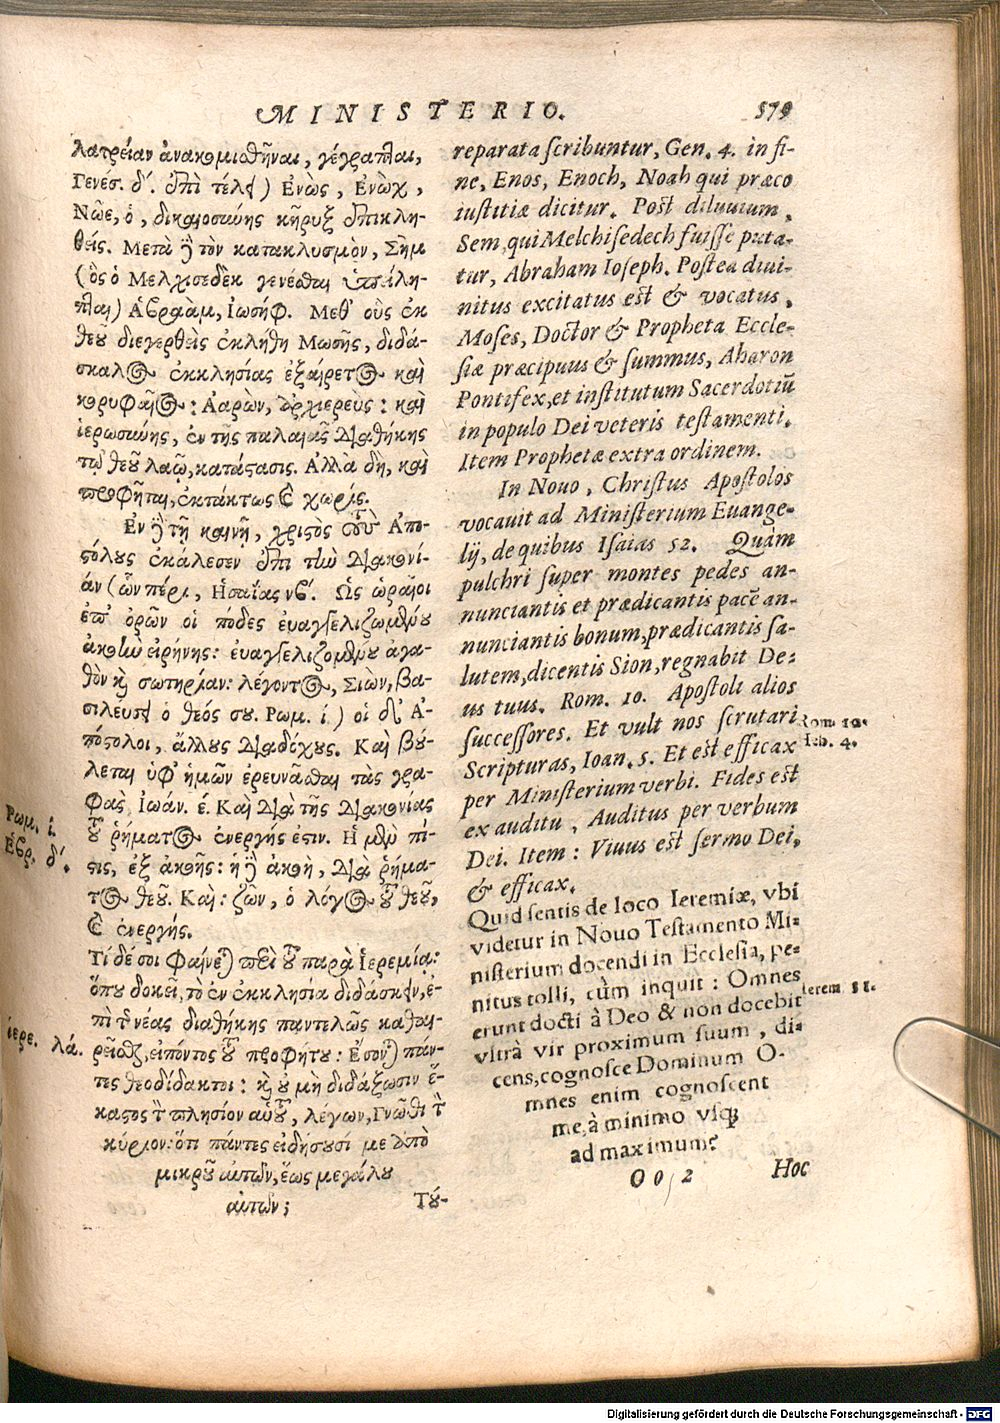 MINISTERIO. 579
λατρείαν ἀνακομισθῆναι, γέγραπται,
Γενέσ. δ´. ἐπὶ τέλει) Ἐνὼς, Ἐνὼχ,
Νῶε, ὁ, δικαιοσύνης κῆρυξ ἐπικλη-
θείς. Μετὰ δὲ τὸν κατακλυσμὸν, Σὴμ
(ὃς ὁ Μελχισεδὲκ γενέσθαι ὑπείλη-
πται) Ἀβραὰμ, Ἰωσήφ. Μεθ᾽ οὓς ἐκ
θεοῦ διεγερθεὶς ἐκλήθη Μωσῆς, διδά-
σκαλος ἐκκλησίας ἐξαίρετος καὶ
κορυφαῖος: Ἀαρὼν, ἀρχιερεὺς: καὶ
ἱερωσύνης, ἐν τῆς παλαιᾶς διαθήκης
τῷ θεοῦ λαῷ, κατάστασις. Ἀλλὰ δὴ, καὶ
προφῆται, ἐκτάκτως καὶ χωρίς.
Ἐν δὲ τῇ καινῇ, χριστὸς τοὺς Ἀπο-
στόλους ἐκάλεσεν ἐπὶ τὴν διακονί-
άν (ὧν πέρι, Ἡσαΐας νβ´. Ὡς ὡραῖοι
ἐπ᾽ ὀρῶν οἱ πόδες εὐαγγελιζομένου
ἀκοὴν εἰρήνης: εὐαγγελιζομένου ἀγα-
θὸν καὶ σωτηρίαν: λέγοντος, Σιὼν, βα-
σιλεύσει ὁ θεός σου. Ρωμ. ί.) οἱ δ᾽ Ἀ-
πόστολοι, ἄλλους διαδόχους. Καὶ βού-
λεται ὑφ᾽ ἡμῶν ἐρευνᾶσθαι τὰς γρα-
φὰς Ἰωάν. έ. Καὶ διὰ τῆς διακονίας
τοῦ ῥήματος ἐνεργής ἐστιν. Ἡ μὲν πί-
στις, ἐξ ἀκοῆς: ἡ δὲ ἀκοὴ, διὰ ῥήμα-
τος θεοῦ. Καὶ: ζῶν, ὁ λόγος τοῦ θεοῦ,
καὶ ἐνεργής.
Ρωμ. ί.
Ἑβρ. δ´.
Τί δέ σοι φαίνεται περὶ τοῦ παρὰ Ἱερεμίᾳ:
ὅπου δοκεῖ, τὸ ἐν ἐκκλησίᾳ διδάσκειν, ἐ-
πὶ τῆς νέας διαθήκης παντελῶς καθαι-
ρεῖσθαι, εἰπόντος τοῦ προφήτου: Ἔσονται πάν-
τες θεοδίδακτοι: καὶ οὐ μὴ διδάξωσιν ἕ-
καστος τὸν πλησίον αὐτοῦ, λέγων, Γνῶθι τὸν
κύριον: ὅτι πάντες εἰδήσουσί με ἀπὸ
μικροῦ αὐτῶν, ἕως μεγάλου
αὐτῶν;
Τού-
ἱερε. λά.
reparata scribuntur, Gen. 4. in fi-
ne, Enos, Enoch, Noah qui præco
iustitiæ dicitur. Post diluuium,
Sem, qui Melchisedech fuisse puta-
tur, Abraham Ioseph. Postea diui-
nitus excitatus est & vocatus,
Moses, Doctor & Propheta Eccle-
siæ præcipuus & summus, Aharon
Pontifex, et institutum Sacerdotiū
in populo Dei veteris testamenti.
Item Prophetæ extra ordinem.
In Nouo, Christus Apostolos
vocauit ad Ministerium Euange-
lij, de quibus Isaias 52. Quàm
pulchri super montes pedes an-
nunciantis et prædicantis pacē an-
nunciantis bonum, prædicantis sa-
lutem, dicentis Sion, regnabit De-
us tuus. Rom. 10. Apostoli alios
successores. Et vult nos scrutari
Scripturas, Ioan. 5. Et est efficax
per Ministerium verbi. Fides est
ex auditu, Auditus per verbum
Dei. Item: Viuus est sermo Dei,
& efficax.
Rom. 10.
Heb. 4.
Quid sentis de loco Ieremiæ, vbi
videtur in Nouo Testamento Mi-
nisterium docendi in Ecclesia, pe-
nitus tolli, cùm inquit: Omnes
erunt docti à Deo & non docebit
vltrà vir proximum suum, di-
cens, cognosce Dominum O-
mnes enim cognoscent
me, à minimo vsq;
ad maximum?
Ierem. 31.
Oo 2 Hoc
Digitalisierung gefördert durch die Deutsche Forschungsgemeinschaft - DFG